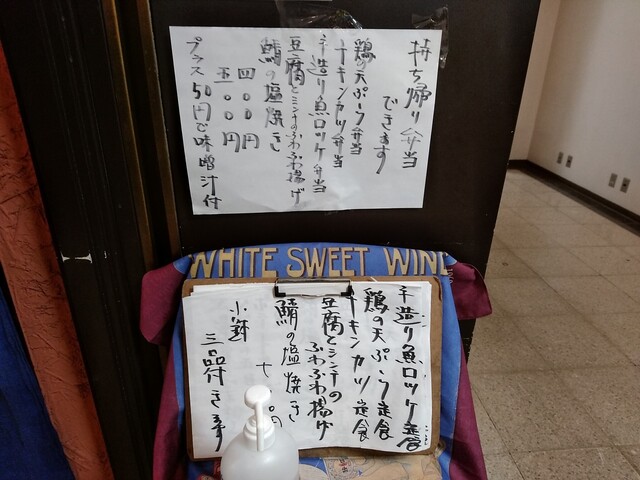 持ち帰り弁当
できます
鶏の天ぷら弁当
チキンカツ弁当
手造り魚ロッケ弁当
豆腐とミンチのふわふわ揚げ
鯖の塩焼き
四〇〇円
五〇〇円
プラス50円で味噌汁付
WHITE SWEET WINE
手造り魚ロッケ定食
鶏の天ぷら定食
チキンカツ定食
豆腐とミンチの
ふわふわ揚げ
鯖の塩焼き
小鉢
三品付きます